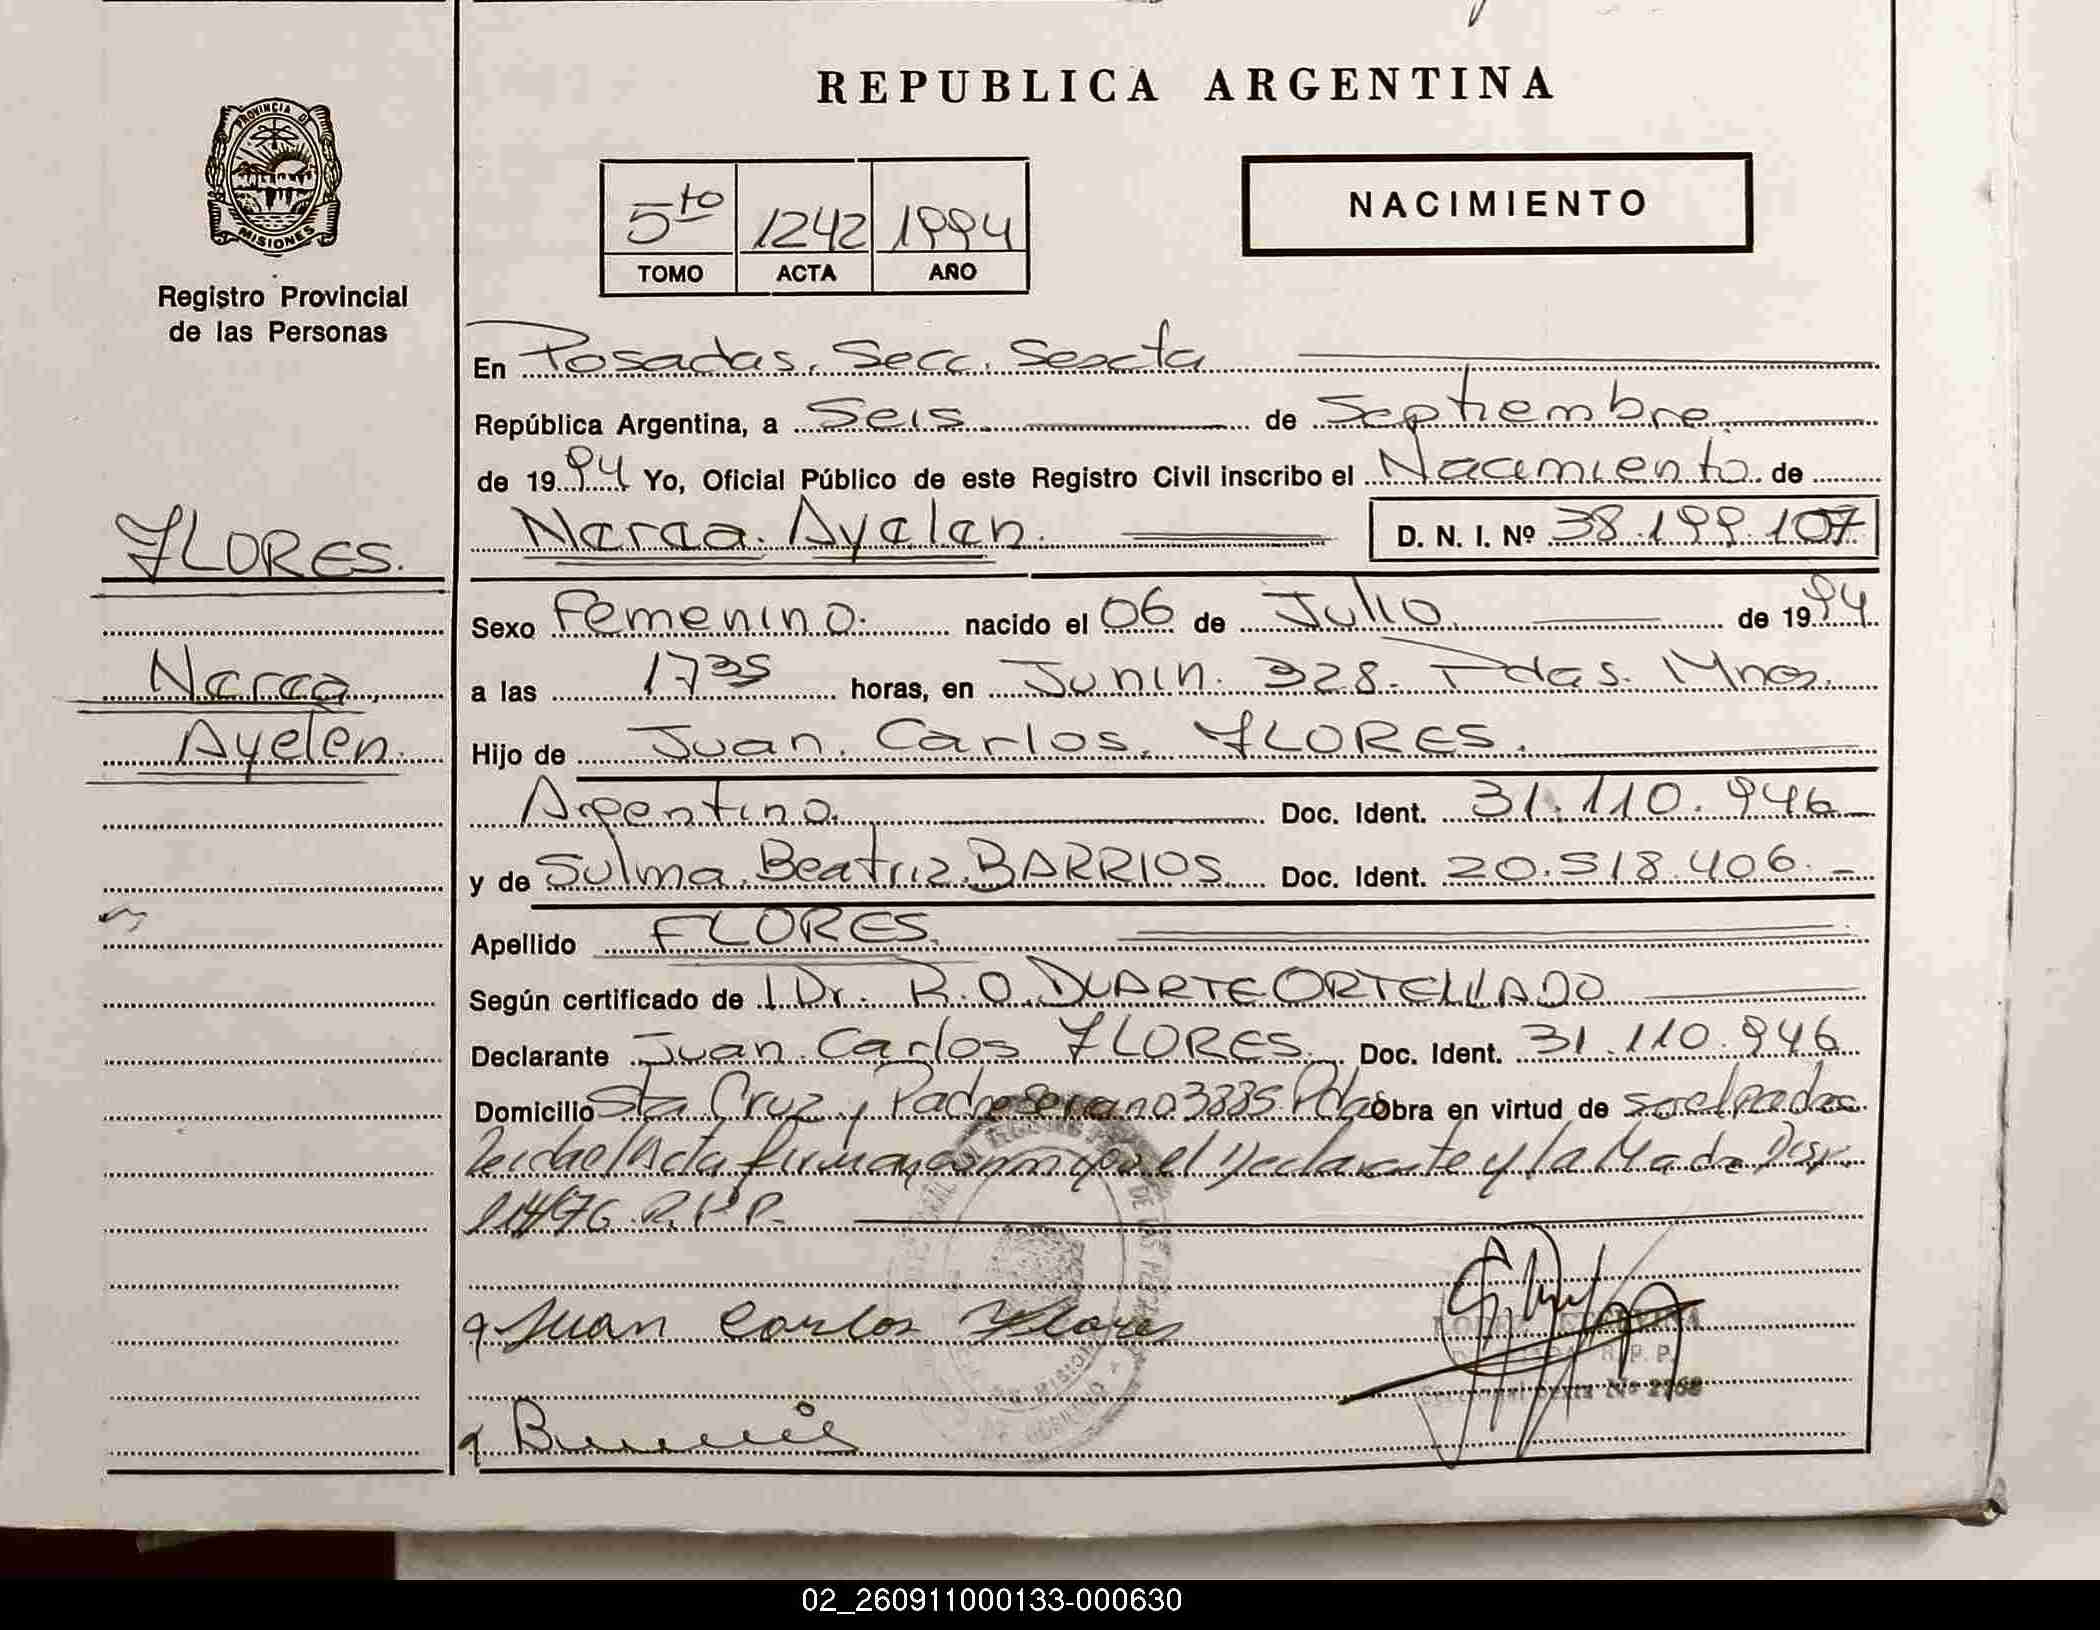 REPUBLICA ARGENTINA
PROVINCIA D
MISIONES
Registro Provincial
de las Personas
5to 1242 1994
TOMO ACTA AÑO
NACIMIENTO
En Posadas. Secc. Sexta
República Argentina, a Seis de Septiembre
de 1994 Yo, Oficial Público de este Registro Civil inscribo el Nacimiento de
FLORES.
Ayelen. D. N. I. Nº 38.199.107
Sexo Femenino. nacido el 06 de Julio de 1994
a las 1735 horas, en Junin. 328. Pdas. Mnes.
Ayelen.
Hijo de Juan. Carlos. FLORES.
Argentino. Doc. Ident. 31.110.946
y de Sulma. Beatriz. BARRIOS. Doc. Ident. 20.518.406.-
Apellido FLORES.
Según certificado de Dr. R.O. DUARTE ORTELLADO
Declarante Juan Carlos FLORES. Doc. Ident. 31.110.946
Domicilio Sta Cruz y Padre Serrano 3885 Pdas Obra en virtud de
el Acta firman por el Declarante y la Madre Disp.
R.P.P.
Juan Carlos Flores
R. P. P.
02_260911000133-000630